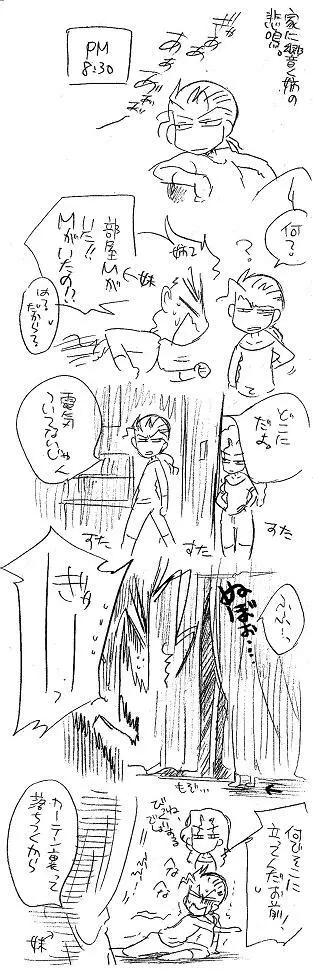 家に響く姉の
悲鳴。
PM
8:30
ぎゃ
ああ
ああ
ああ
何?
?
姉2
←妹
部屋Mが
いた!!
Mがいたの!?
どこに
だよ
電気
ついてないじゃん
すた
すた
すた
ふふ…
ぬぼぉ…
ぎゃーーっ
もぞ…
何でそこに
立ってんだお前!
へな
へな
カーテン裏って
落ちつくから
妹→